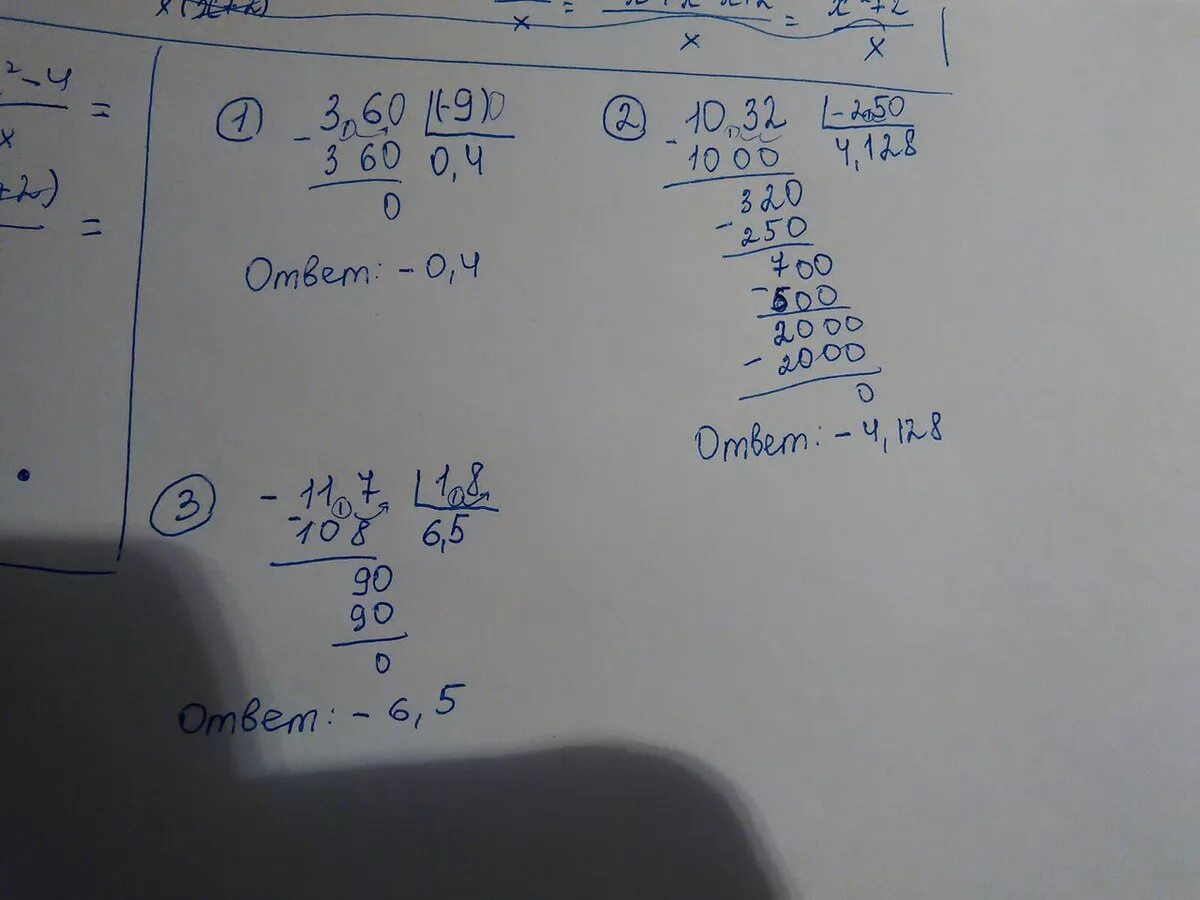 x
x
=
=
x
x
² - 4
x
=
+2)
=
① - 3,60 |(-9)0
3 60 0,4
0
Ответ: - 0,4
② - 10,32 |-2,50
1000 4,128
320
- 250
700
- 500
2000
- 2000
0
Ответ: - 4,128
③ - 11,7 |1,8
- 108 6,5
90
90
0
Ответ: - 6,5